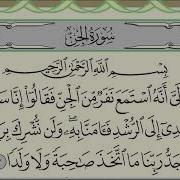 سُورَةُ الجِنّ
بِسْمِ ٱللَّهِ ٱلرَّحْمَٰنِ ٱلرَّحِيمِ
أَنَّهُ ٱسْتَمَعَ نَفَرٌ مِّنَ ٱلْجِنِّ فَقَالُوٓا۟ إِنَّا
إِلَى ٱلرُّشْدِ فَـَٔامَنَّا بِهِۦ وَلَن نُّشْرِكَ
جَدُّ رَبِّنَا مَا ٱتَّخَذَ صَٰحِبَةً وَلَا وَلَدًا